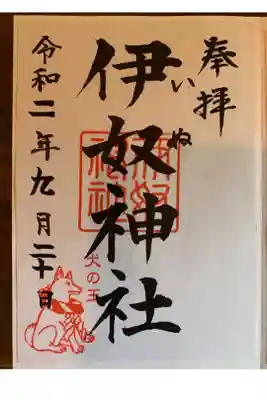 奉拝
いぬ
伊奴神社
犬の王
令和二年九月二十日